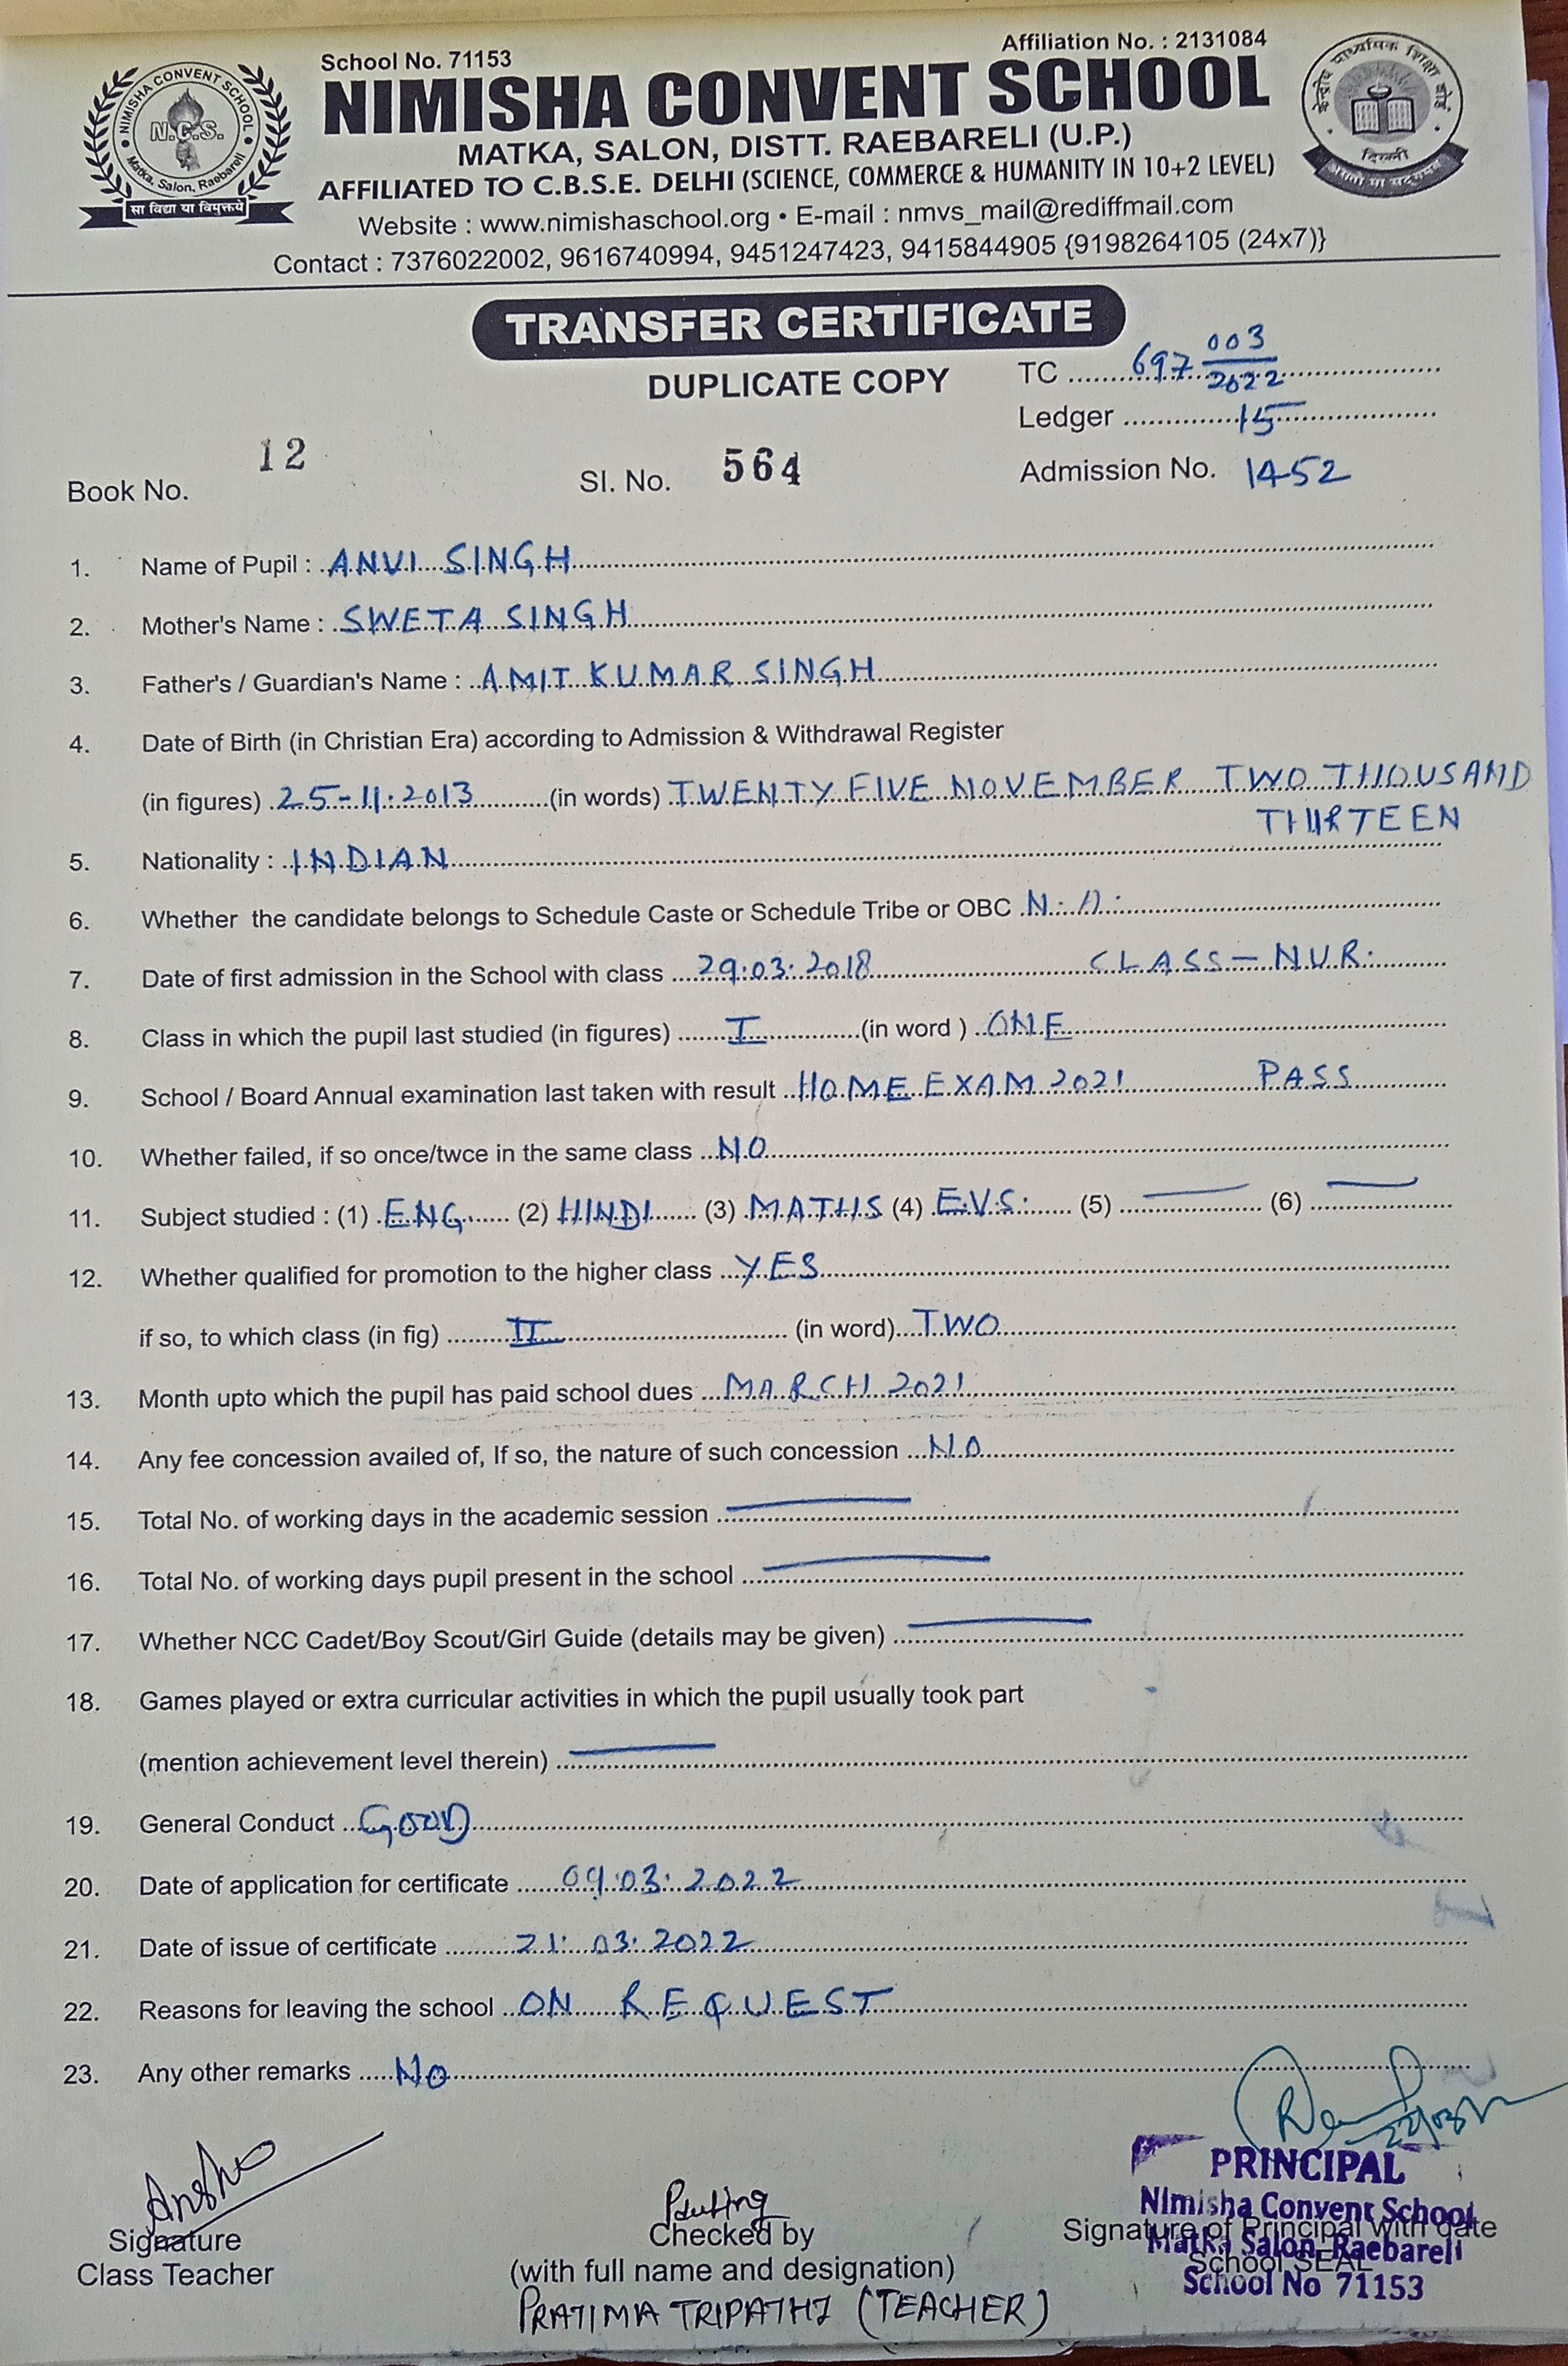 School No. 71153
Affiliation No. : 2131084
NIMISHA CONVENT SCHOOL
NIMISHA CONVENT SCHOOL
N.C.S.
Matka, Salon, Raebareli
सा विद्या या विमुक्तये
केन्द्रीय माध्यमिक शिक्षा बोर्ड
दिल्ली
असतो मा सद्गमय
MATKA, SALON, DISTT. RAEBARELI (U.P.)
AFFILIATED TO C.B.S.E. DELHI (SCIENCE, COMMERCE & HUMANITY IN 10+2 LEVEL)
Website : www.nimishaschool.org • E-mail : nmvs_mail@rediffmail.com
Contact : 7376022002, 9616740994, 9451247423, 9415844905 {9198264105 (24x7)}
TRANSFER CERTIFICATE
DUPLICATE COPY
TC 697 003/2022
Ledger 15
Book No. 12 Sl. No. 564 Admission No. 1452
1. Name of Pupil : ANVI SINGH
2. Mother's Name : SWETA SINGH
3. Father's / Guardian's Name : AMIT KUMAR SINGH
4. Date of Birth (in Christian Era) according to Admission & Withdrawal Register
(in figures) 25-11-2013 (in words) TWENTY FIVE NOVEMBER TWO THOUSAND
THIRTEEN
5. Nationality : INDIAN
6. Whether the candidate belongs to Schedule Caste or Schedule Tribe or OBC N.A.
7. Date of first admission in the School with class 29.03.2018 CLASS-NUR.
8. Class in which the pupil last studied (in figures) I (in word ) ONE
9. School / Board Annual examination last taken with result HOME EXAM 2021 PASS
10. Whether failed, if so once/twce in the same class NO
11. Subject studied : (1) ENG (2) HINDI (3) MATHS (4) E.V.S. (5) — (6) —
12. Whether qualified for promotion to the higher class YES
if so, to which class (in fig) II (in word) TWO
13. Month upto which the pupil has paid school dues MARCH 2021
14. Any fee concession availed of, If so, the nature of such concession NO
15. Total No. of working days in the academic session —
16. Total No. of working days pupil present in the school —
17. Whether NCC Cadet/Boy Scout/Girl Guide (details may be given) —
18. Games played or extra curricular activities in which the pupil usually took part
(mention achievement level therein) —
19. General Conduct GOOD
20. Date of application for certificate 09.03.2022
21. Date of issue of certificate 21.03.2022
22. Reasons for leaving the school ON REQUEST
23. Any other remarks No
Signature
Class Teacher
Checked by
(with full name and designation)
PRATIMA TRIPATHI (TEACHER)
Signature of Principal with date
School SEAL
PRINCIPAL
Nimisha Convent School
Matka Salon, Raebareli
School No 71153